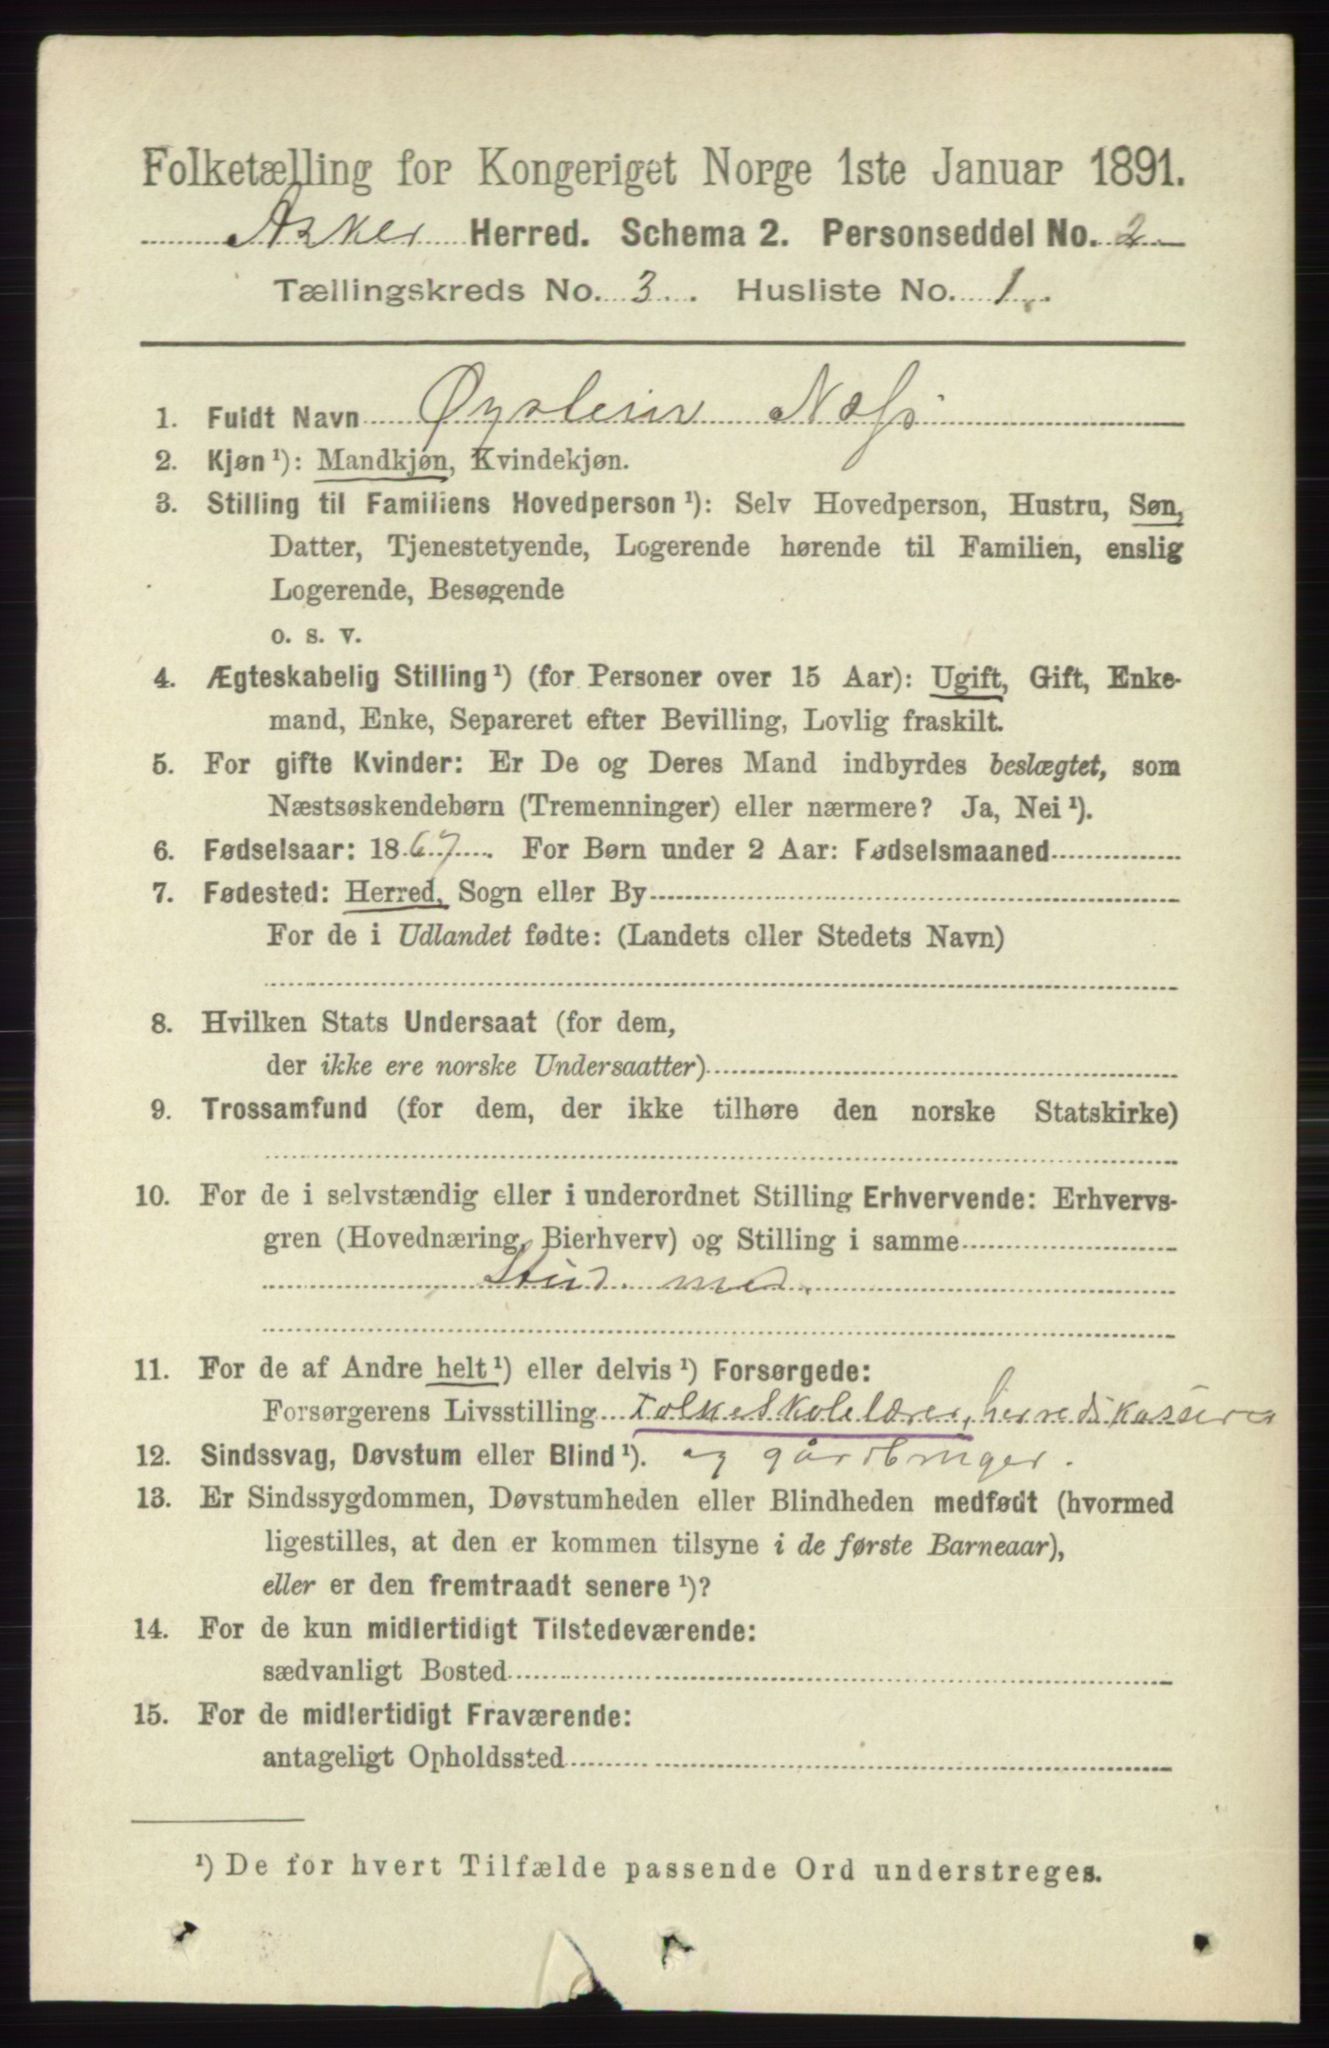 Folketælling for Kongeriget Norge 1ste Januar 1891.
Asker Herred. Schema 2. Personseddel No. 2
Tællingskreds No. 3. Husliste No. 1.
1. Fuldt Navn Øystein Næss
2. Kjøn ¹): Mandkjøn, Kvindekjøn.
3. Stilling til Familiens Hovedperson ¹): Selv Hovedperson, Hustru, Søn,
Datter, Tjenestetyende, Logerende hørende til Familien, enslig
Logerende, Besøgende
o. s. v.
4. Ægteskabelig Stilling ¹) (for Personer over 15 Aar): Ugift, Gift, Enke-
mand, Enke, Separeret efter Bevilling, Lovlig fraskilt.
5. For gifte Kvinder: Er De og Deres Mand indbyrdes beslægtet, som
Næstsøskendebørn (Tremenninger) eller nærmere? Ja, Nei ¹).
6. Fødselsaar: 1867. For Børn under 2 Aar: Fødselsmaaned
7. Fødested: Herred, Sogn eller By
For de i Udlandet fødte: (Landets eller Stedets Navn)
8. Hvilken Stats Undersaat (for dem,
der ikke ere norske Undersaatter)
9. Trossamfund (for dem, der ikke tilhøre den norske Statskirke)
10. For de i selvstændig eller i underordnet Stilling Erhvervende: Erhvervs-
gren (Hovednæring, Bierhverv) og Stilling i samme
Stud. med.
11. For de af Andre helt ¹) eller delvis ¹) Forsørgede:
Forsørgerens Livsstilling Folkeskolelærer, herredskasserer
12. Sindssvag, Døvstum eller Blind ¹). og gårdbruger.
13. Er Sindssygdommen, Døvstumheden eller Blindheden medfødt (hvormed
ligestilles, at den er kommen tilsyne i de første Barneaar),
eller er den fremtraadt senere ¹)?
14. For de kun midlertidigt Tilstedeværende:
sædvanligt Bosted
15. For de midlertidigt Fraværende:
antageligt Opholdssted
¹) De for hvert Tilfælde passende Ord understreges.